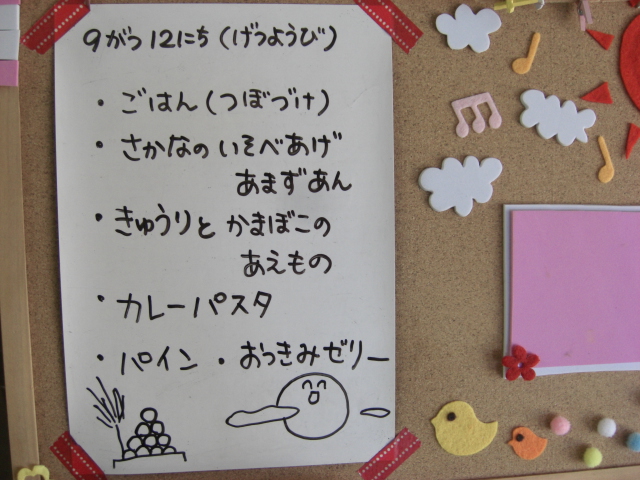 9がつ12にち(げつようび)
・ごはん(つぼづけ)
・さかなのいそべあげ
あまずあん
・きゅうりとかまぼこの
あえもの
・カレーパスタ
・パイン・おつきみゼリー